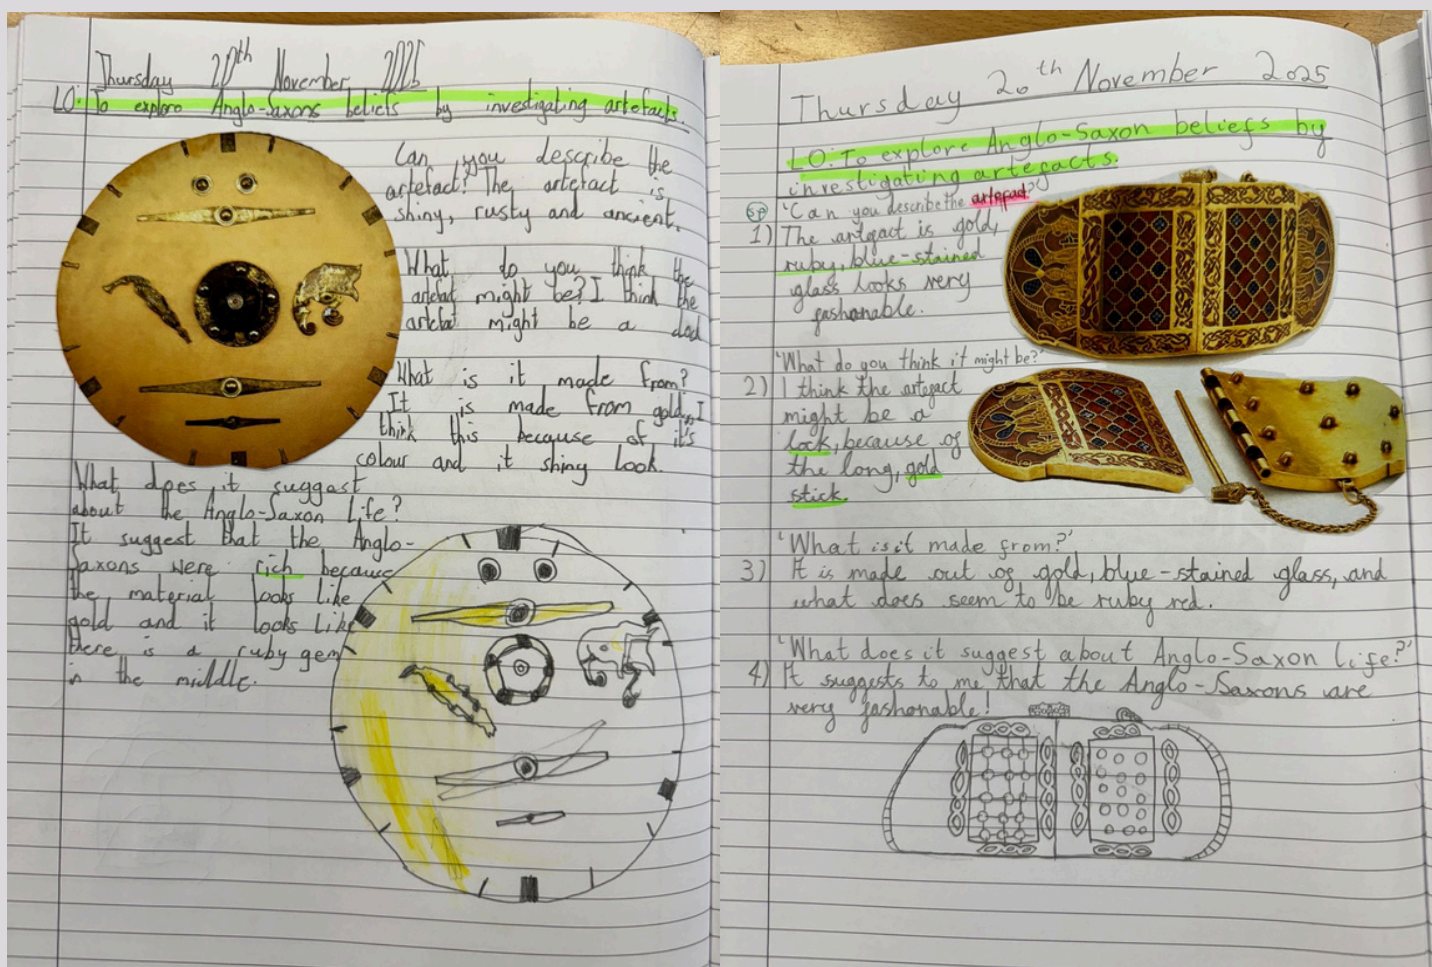 Thursday 20th November 2025
LO: To explore Anglo-Saxons beliefs by investigating artefacts.
Can you describe the
artefact? The artefact is
shiny, rusty and ancient.
What do you think the
artefat might be? I think the
artefat might be a
What is it made from?
It is made from gold, I
think this because of it's
colour and it shiny look.
What does it suggest
about the Anglo-Saxon Life?
It suggest that the Anglo-
Saxons were rich because
the material looks like
gold and it looks like
there is a ruby gem
in the middle.
Thursday 20th November 2025
LO: To explore Anglo-Saxon beliefs by
investigating artefacts.
sp 'Can you describe the artefact?'
1) The artefact is gold,
ruby, blue-stained
glass looks very
fashonable.
'What do you think it might be?'
2) I think the artefact
might be a
lock, because of
the long, gold
stick.
'What is it made from?'
3) It is made out of gold, blue-stained glass, and
what does seem to be ruby red.
'What does it suggest about Anglo-Saxon life?'
4) It suggests to me that the Anglo-Saxons are
very fashonable!